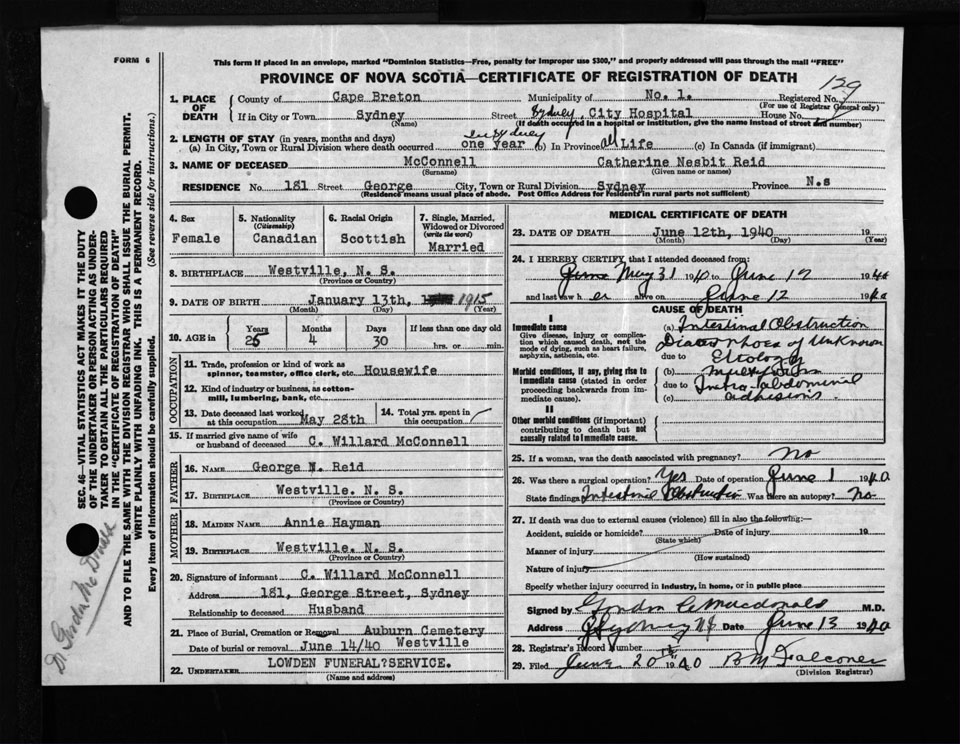 FORM 6
This form if placed in an envelope, marked "Dominion Statistics—Free, penalty for improper use $300," and properly addressed will pass through the mail "FREE"
PROVINCE OF NOVA SCOTIA—CERTIFICATE OF REGISTRATION OF DEATH
129
1. PLACE OF DEATH County of Cape Breton Municipality of No. 1. Registered No. (For use of Registrar General only)
If in City or Town Sydney (Name) Street Sydney, City Hospital House No.
(If death occurred in a hospital or institution, give the name instead of street and number)
2. LENGTH OF STAY (in years, months and days)
(a) In City, Town or Rural Division where death occurred in Sydney one year (b) In Province all Life (c) In Canada (if immigrant)
3. NAME OF DECEASED McConnell Catherine Nesbit Reid
(Surname) (Given name or names)
RESIDENCE No. 181 Street George City, Town or Rural Division Sydney Province N.s
(Residence means usual place of abode. Post Office Address for Residents in rural parts not sufficient)
4. Sex Female
5. Nationality (Citizenship) Canadian
6. Racial Origin Scottish
7. Single, Married, Widowed or Divorced (write the word) Married
8. BIRTHPLACE Westville, N. S.
(Province or Country)
9. DATE OF BIRTH January 13th, 1915
(Month) (Day) (Year)
10. AGE in Years 25 Months 4 Days 30 If less than one day old hrs. or min.
OCCUPATION
11. Trade, profession or kind of work as spinner, teamster, office clerk, etc. Housewife
12. Kind of industry or business, as cotton-mill, lumbering, bank, etc.
13. Date deceased last worked at this occupation May 28th
14. Total yrs. spent in this occupation
15. If married give name of wife or husband of deceased C. Willard McConnell
FATHER
16. NAME George N. Reid
17. BIRTHPLACE Westville. N. S.
(Province or Country)
MOTHER
18. MAIDEN NAME Annie Hayman
19. BIRTHPLACE Westville. N. S.
(Province or Country)
20. Signature of informant C. Willard McConnell
Address 181, George Street, Sydney
Relationship to deceased Husband
21. Place of Burial, Cremation or Removal Auburn Cemetery
Date of burial or removal June 14/40 Westville
22. UNDERTAKER LOWDEN FUNERAL?SERVICE.
(Name and address)
MEDICAL CERTIFICATE OF DEATH
23. DATE OF DEATH June 12th, 1940 19
(Month) (Day) (Year)
24. I HEREBY CERTIFY that I attended deceased from:
June May 31 1940 to June 12 1940
and last saw her alive on June 12 1940
CAUSE OF DEATH
I
Immediate cause
Give disease, injury or complication which caused death, not the mode of dying, such as heart failure, asphyxia, asthenia, etc.
(a) Intestinal Obstruction
Diarrhoea of Unknown
due to Etiology
Morbid conditions, if any, giving rise to immediate cause (stated in order proceeding backwards from immediate cause).
(b)
due to Intra-abdominal
(c) adhesions.
II
Other morbid conditions (if important) contributing to death but not causally related to immediate cause.
25. If a woman, was the death associated with pregnancy? No
26. Was there a surgical operation? Yes Date of operation June 1 1940
State findings Intestinal Obstruction Was there an autopsy? No
27. If death was due to external causes (violence) fill in also the following:—
Accident, suicide or homicide? Date of injury 19
(State which)
Manner of injury
(How sustained)
Nature of injury
Specify whether injury occurred in industry, in home, or in public place
Signed by Gordon C. Macdonald M.D.
Address Sydney NS Date June 13 1940
28. Registrar's Record Number
29. Filed June 20th 1940 B M Falconer
(Division Registrar)
SEC. 46—VITAL STATISTICS ACT MAKES IT THE DUTY
OF THE UNDERTAKER OR PERSON ACTING AS UNDER-
TAKER TO OBTAIN ALL THE PARTICULARS REQUIRED
IN THE "CERTIFICATE OF REGISTRATION OF DEATH"
AND TO FILE THE SAME WITH THE DIVISION REGISTRAR WHO SHALL ISSUE THE BURIAL PERMIT.
WRITE PLAINLY WITH UNFADING INK. THIS IS A PERMANENT RECORD.
Every item of information should be carefully supplied. (See reverse side for instructions.)
Dr Gordon McDonald